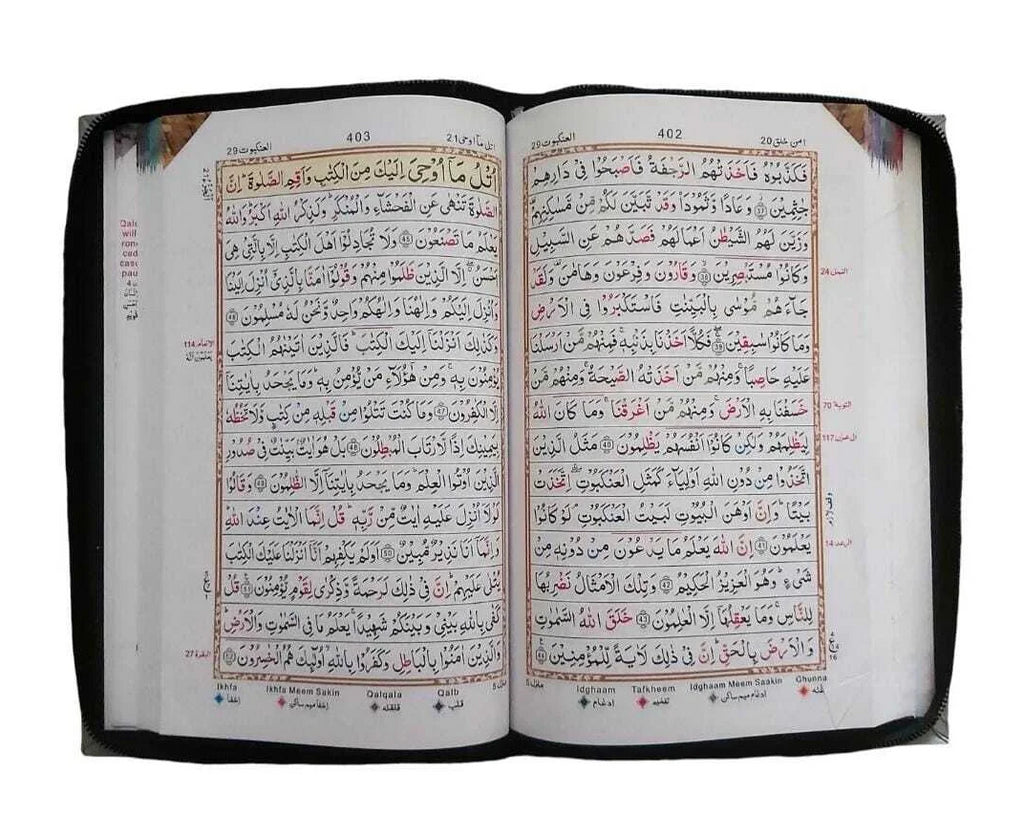 العنكبوت 29
402
امن خلق 20
فَكَذَّبُوْهُ فَاَخَذَتْهُمُ الرَّجْفَةُ فَاَصْبَحُوْا فِىْ دَارِهِمْ
جٰثِمِيْنَ ﴿37﴾ وَعَادًا وَّثَمُوْدَا۟ وَقَدْ تَّبَيَّنَ لَكُمْ مِّنْ مَّسٰكِنِهِمْ
وَزَيَّنَ لَهُمُ الشَّيْطٰنُ اَعْمَالَهُمْ فَصَدَّهُمْ عَنِ السَّبِيْلِ
وَكَانُوْا مُسْتَبْصِرِيْنَ ﴿38﴾ وَقَارُوْنَ وَفِرْعَوْنَ وَهَامٰنَ وَلَقَدْ
جَآءَهُمْ مُّوْسٰى بِالْبَيِّنٰتِ فَاسْتَكْبَرُوْا فِى الْاَرْضِ
وَمَا كَانُوْا سٰبِقِيْنَ ﴿39﴾ فَكُلًّا اَخَذْنَا بِذَنْۢبِهٖ فَمِنْهُمْ مَّنْ اَرْسَلْنَا
عَلَيْهِ حَاصِبًا وَمِنْهُمْ مَّنْ اَخَذَتْهُ الصَّيْحَةُ وَمِنْهُمْ مَّنْ
خَسَفْنَا بِهِ الْاَرْضَ وَمِنْهُمْ مَّنْ اَغْرَقْنَا وَمَا كَانَ اللّٰهُ
لِيَظْلِمَهُمْ وَلٰكِنْ كَانُوْۤا اَنْفُسَهُمْ يَظْلِمُوْنَ ﴿40﴾ مَثَلُ الَّذِيْنَ
اتَّخَذُوْا مِنْ دُوْنِ اللّٰهِ اَوْلِيَآءَ كَمَثَلِ الْعَنْكَبُوْتِ اِتَّخَذَتْ
بَيْتًا وَاِنَّ اَوْهَنَ الْبُيُوْتِ لَبَيْتُ الْعَنْكَبُوْتِ لَوْ كَانُوْا
يَعْلَمُوْنَ ﴿41﴾ اِنَّ اللّٰهَ يَعْلَمُ مَا يَدْعُوْنَ مِنْ دُوْنِهٖ مِنْ
شَىْءٍ وَهُوَ الْعَزِيْزُ الْحَكِيْمُ ﴿42﴾ وَتِلْكَ الْاَمْثَالُ نَضْرِبُهَا
لِلنَّاسِ وَمَا يَعْقِلُهَاۤ اِلَّا الْعٰلِمُوْنَ ﴿43﴾ خَلَقَ اللّٰهُ السَّمٰوٰتِ
وَالْاَرْضَ بِالْحَقِّ اِنَّ فِىْ ذٰلِكَ لَاٰيَةً لِّلْمُؤْمِنِيْنَ ﴿44﴾
النمل 24
التوبة 70
ال عمرٰن 117
الرعد 14
ع
16
منزل 5
Idghaam Tafkheem Idghaam Meem Saakin Ghunna
ادغام تفخيم ادغام ميم ساكن غنّه
العنكبوت 29
403
اتل ما اوحى 21
اُتْلُ مَاۤ اُوْحِىَ اِلَيْكَ مِنَ الْكِتٰبِ وَاَقِمِ الصَّلٰوةَ اِنَّ
الصَّلٰوةَ تَنْهٰى عَنِ الْفَحْشَآءِ وَالْمُنْكَرِ وَلَذِكْرُ اللّٰهِ اَكْبَرُ وَاللّٰهُ
يَعْلَمُ مَا تَصْنَعُوْنَ ﴿45﴾ وَلَا تُجَادِلُوْۤا اَهْلَ الْكِتٰبِ اِلَّا بِالَّتِىْ هِىَ
اَحْسَنُ اِلَّا الَّذِيْنَ ظَلَمُوْا مِنْهُمْ وَقُوْلُوْۤا اٰمَنَّا بِالَّذِىْۤ اُنْزِلَ اِلَيْنَا
وَاُنْزِلَ اِلَيْكُمْ وَاِلٰهُنَا وَاِلٰهُكُمْ وَاحِدٌ وَّنَحْنُ لَهٗ مُسْلِمُوْنَ ﴿46﴾
وَكَذٰلِكَ اَنْزَلْنَاۤ اِلَيْكَ الْكِتٰبَ فَالَّذِيْنَ اٰتَيْنٰهُمُ الْكِتٰبَ
يُؤْمِنُوْنَ بِهٖ وَمِنْ هٰۤؤُلَآءِ مَنْ يُّؤْمِنُ بِهٖ وَمَا يَجْحَدُ بِاٰيٰتِنَاۤ
اِلَّا الْكٰفِرُوْنَ ﴿47﴾ وَمَا كُنْتَ تَتْلُوْا مِنْ قَبْلِهٖ مِنْ كِتٰبٍ وَّلَا تَخُطُّهٗ
بِيَمِيْنِكَ اِذًا لَّارْتَابَ الْمُبْطِلُوْنَ ﴿48﴾ بَلْ هُوَ اٰيٰتٌۢ بَيِّنٰتٌ فِىْ صُدُوْرِ
الَّذِيْنَ اُوْتُوا الْعِلْمَ وَمَا يَجْحَدُ بِاٰيٰتِنَاۤ اِلَّا الظّٰلِمُوْنَ ﴿49﴾ وَقَالُوْا
لَوْلَاۤ اُنْزِلَ عَلَيْهِ اٰيٰتٌ مِّنْ رَّبِّهٖ قُلْ اِنَّمَا الْاٰيٰتُ عِنْدَ اللّٰهِ
وَاِنَّمَاۤ اَنَا نَذِيْرٌ مُّبِيْنٌ ﴿50﴾ اَوَلَمْ يَكْفِهِمْ اَنَّاۤ اَنْزَلْنَا عَلَيْكَ الْكِتٰبَ
يُتْلٰى عَلَيْهِمْ اِنَّ فِىْ ذٰلِكَ لَرَحْمَةً وَّذِكْرٰى لِقَوْمٍ يُّؤْمِنُوْنَ ﴿51﴾ قُلْ
كَفٰى بِاللّٰهِ بَيْنِىْ وَبَيْنَكُمْ شَهِيْدًا يَعْلَمُ مَا فِى السَّمٰوٰتِ وَالْاَرْضِ
وَالَّذِيْنَ اٰمَنُوْا بِالْبَاطِلِ وَكَفَرُوْا بِاللّٰهِ اُولٰٓئِكَ هُمُ الْخٰسِرُوْنَ ﴿52﴾
الانعام 114
البقرة 27
منزل 5
Ikhfa Ikhfa Meem Sakin Qalqala Qalb
اخفا اخفا ميم ساكن قلقله قلب